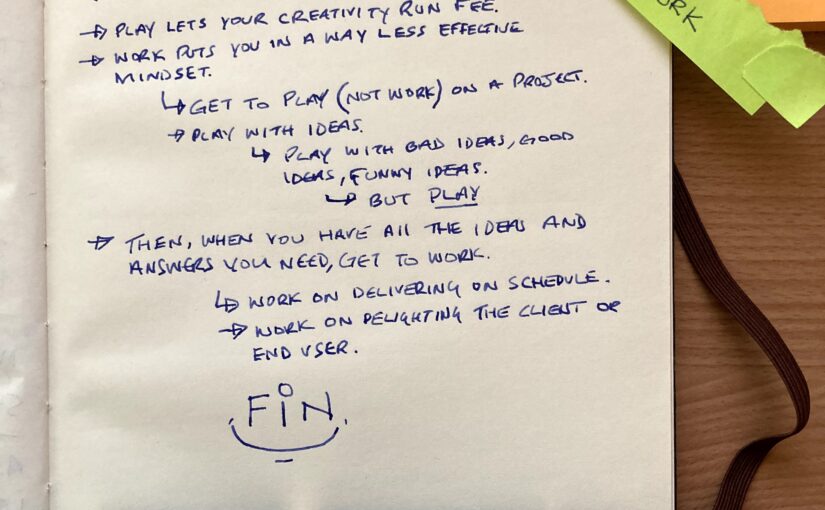 → PLAY LETS YOUR CREATIVITY RUN FEE.
→ WORK PUTS YOU IN A WAY LESS EFFECTIVE
MINDSET.
↳ GET TO PLAY (NOT WORK) ON A PROJECT.
→ PLAY WITH IDEAS.
↳ PLAY WITH BAD IDEAS, GOOD
IDEAS, FUNNY IDEAS.
↳ BUT PLAY
→ THEN, WHEN YOU HAVE All THE IDEAS AND
ANSWERS YOU NEED, GET TO WORK.
↳ WORK ON DELIVERING ON SCHEDULE.
→ WORK ON DELIGHTING THE CLIENT OR
END USER.
FiN